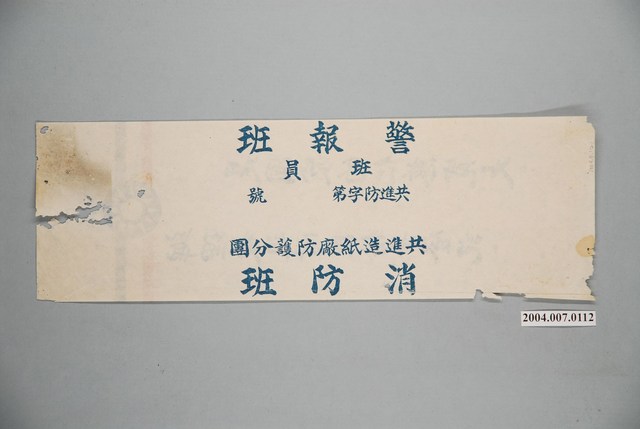 警報班
班員
共進防字第　　號
共進造紙廠防護分團
消防班
2004.007.0112